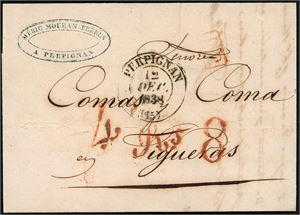 MÉRIC MOURAN
A PERPIGNAN
PERPIGNAN
12
DEC.
1838
(65)
Comas Coma
4 Rs 8
en
Figueras